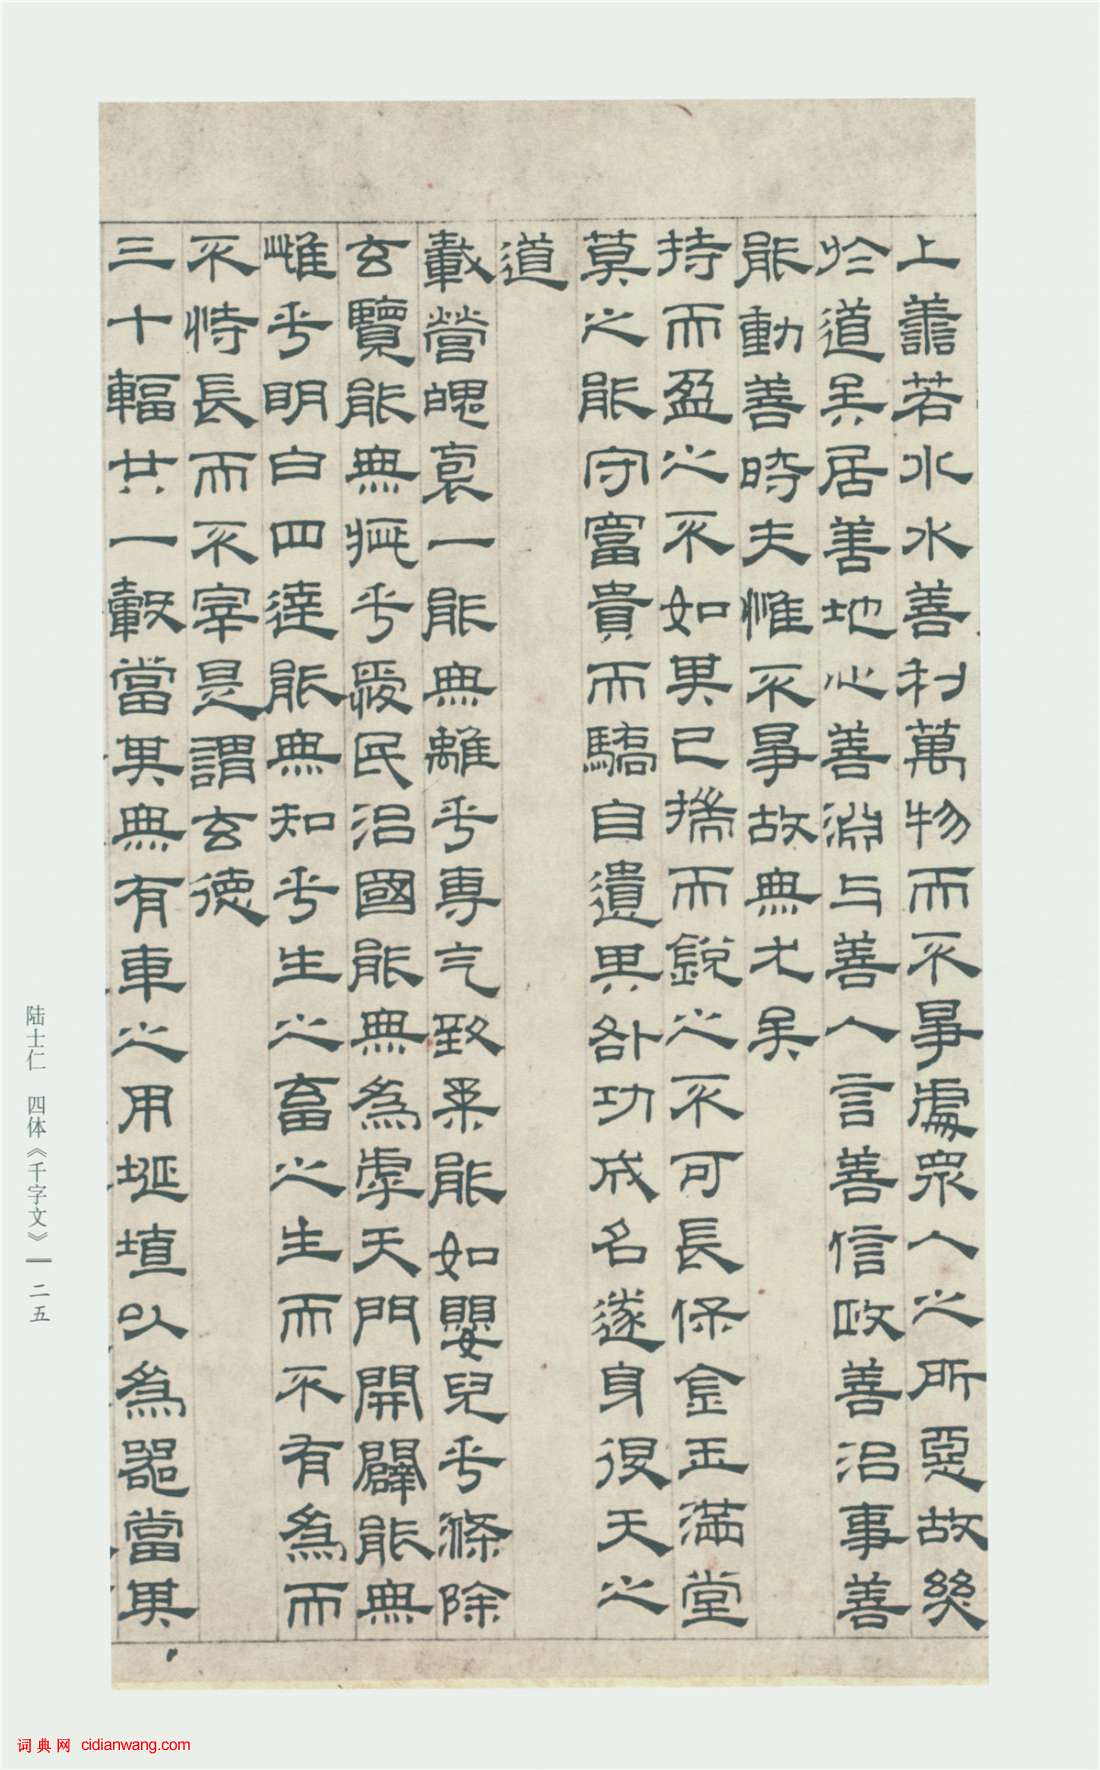 上善若水水善利萬物而不爭處衆人之所惡故幾
於道矣居善地心善淵与善人言善信政善治事善
能動善時夫惟不爭故無尤矣
持而盈之不如其已揣而銳之不可長保金玉滿堂
莫之能守富貴而驕自遺其咎功成名遂身退天之
道
載營魄裒一能無離乎專气致柔能如嬰兒乎滌除
玄覽能無疵乎愛民治國能無為虖天門開闢能無
雌乎明白四達能無知乎生之畜之生而不有為而
不恃長而不宰是謂玄德
三十輻共一轂當其無有車之用埏埴以為器當其
陆士仁 四体《千字文》— 二五
词典网 cidianwang.com